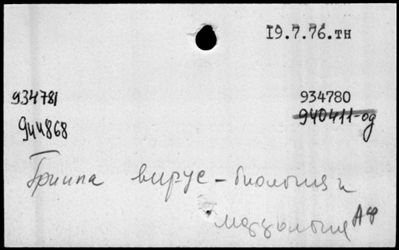 19.7.76.тн
934781
934780
944868
940411-од
Гриппа вирус - биология и
Аф